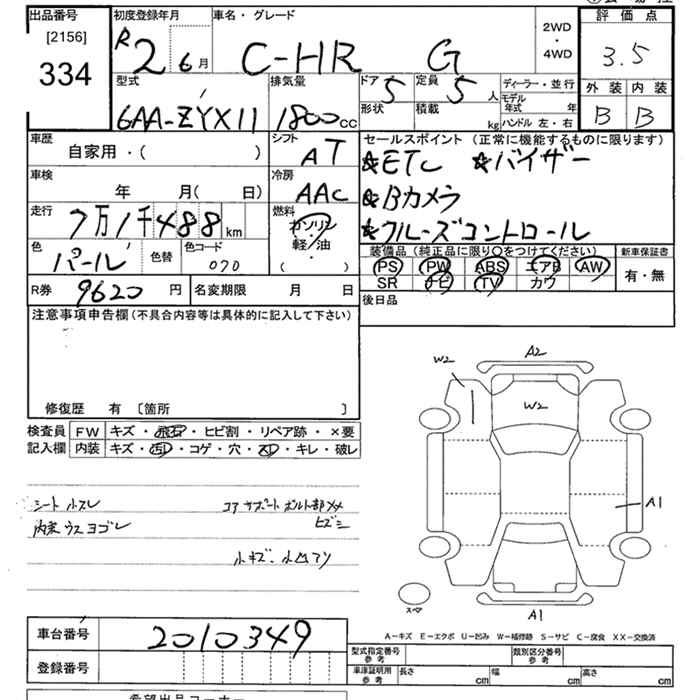 出品番号 初度登録年月 車名・グレード 2WD ・ 4WD 評価点
[2156]
334 R2 6月 C-HR G 3.5
型式 排気量 ドア 定員 ディーラー・並行 外装 内装
6AA-ZYX11 1800cc 5 5人 モデル年式 年 B B
形状 積載 kg ハンドル 左・右
車歴 シフト セールスポイント (正常に機能するものに限ります)
自家用・( ) AT ★ETC ★バイザー
車検 冷房 ★Bカメラ
年 月( 日) AAC ★クルーズコントロール
走行 7万1千488km 燃料 ガソリン・軽油 ( )
色 パール 色替 色コード 070 装備品(純正品に限り○をつけてください) 新車保証書
PS PW ABS エアB AW 有・無
SR ナビ TV カワ
R券 9620円 名変期限 月 日 後日品
注意事項申告欄(不具合内容等は具体的に記入して下さい)
修復歴 有 [箇所 ]
検査員 FW キズ・飛石・ヒビ割・リペア跡・×要
記入欄 内装 キズ・汚・コゲ・穴・スレ・キレ・破レ
シート小スレ コアサポートボルト部
内装ウスヨゴレ ヒズミ
小キズ・小凹アリ
W2 A2
W2
A1
スペア A1
A-キズ E-エクボ U-凹み W-補修跡 S-サビ C-腐食 XX-交換済
車台番号 2010349
登録番号
型式指定番号 参考 類別区分番号 参考
車庫証明用 参考 長さ cm 幅 cm 高さ cm
希望出品コーナー